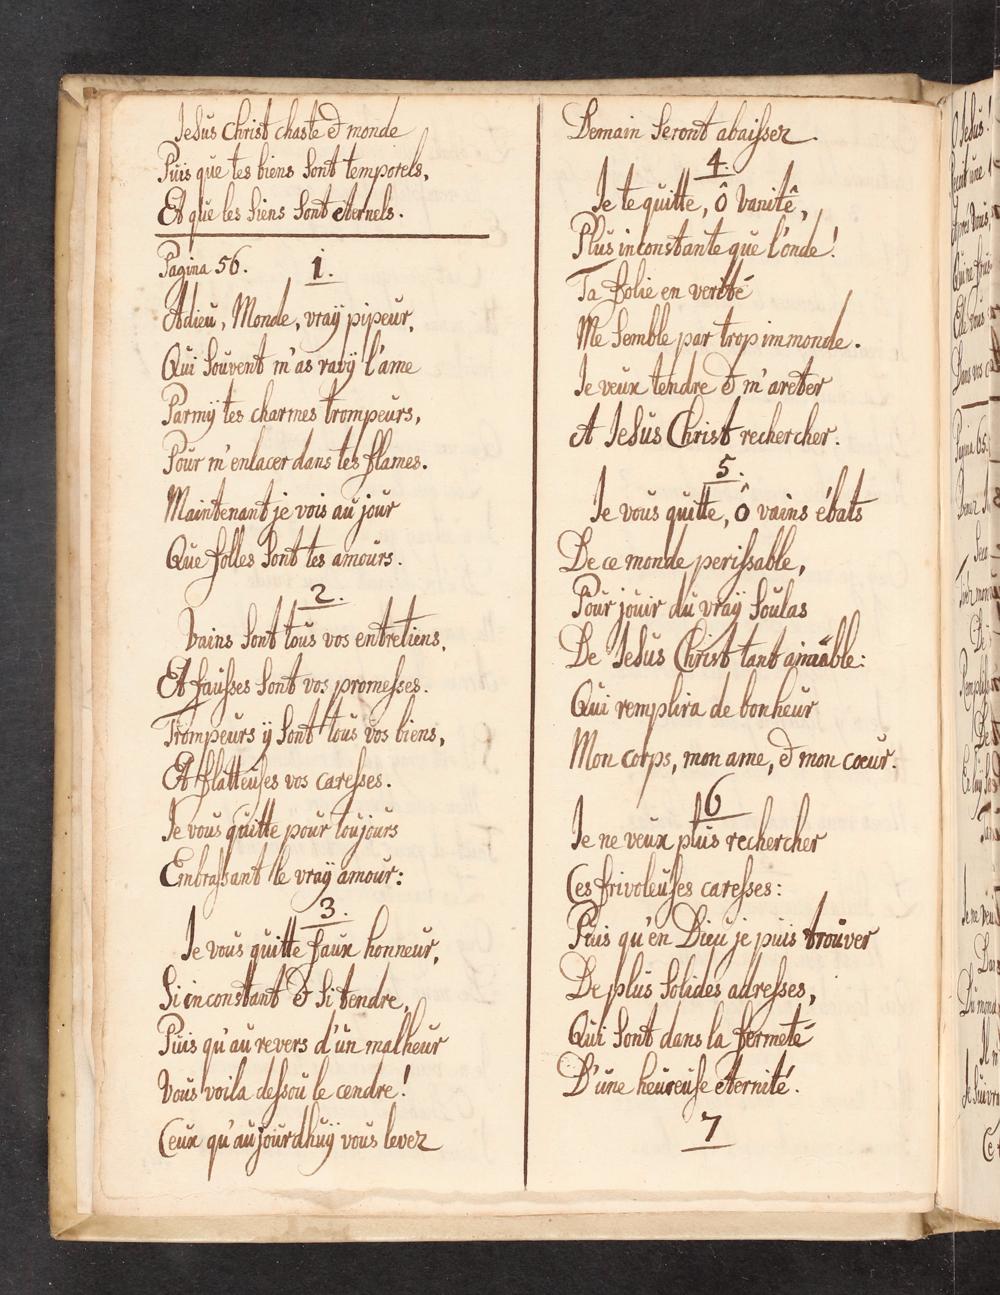 Jesus Christ chaste & monde
Puis que tes biens sont temporels,
Et que les siens sont eternels.
Pagina 56. 1.
Adieu, Monde, vraÿ pipeur,
Qui souvent m'as ravÿ l'ame
Parmÿ tes charmes trompeurs,
Pour m'enlacer dans tes flames.
Maintenant je vois au jour
Que folles sont tes amours.
2.
Vains sont tous vos entretiens,
Et fausses sont vos promesses.
Trompeurs ÿ sont tous vos biens,
Et flatteuses vos caresses.
Je vous quitte pour toujours
Embrassant le vraÿ amour:
3.
Je vous quitte faux honneur,
Si inconstant & si tendre,
Puis qu'au revers d'un malheur
Vous voila dessou le cendre!
Ceux qu'aujourdhuÿ vous levez
Demain seront abaissez.
4.
Je te quitte, ô vanitê,
Plus inconstante que l'onde!
Ta folie en verité
Me semble par trop immonde.
Je veux tendre & m'areter
A Jesus Christ rechercher.
5.
Je vous quitte, ô vains ébats
De ce monde perissable,
Pour jouir du vraÿ soulas
De Jesus Christ tant aimable:
Qui remplira de bonheur
Mon corps, mon ame, & mon cœur.
6
Je ne veux plus rechercher
Ces frivoleuses caresses:
Puis qu'en Dieu je puis trouver
De plus solides adresses,
Qui sont dans la fermeté
D'une heureuse eternité.
7
O Jesus!
Pagina 65.